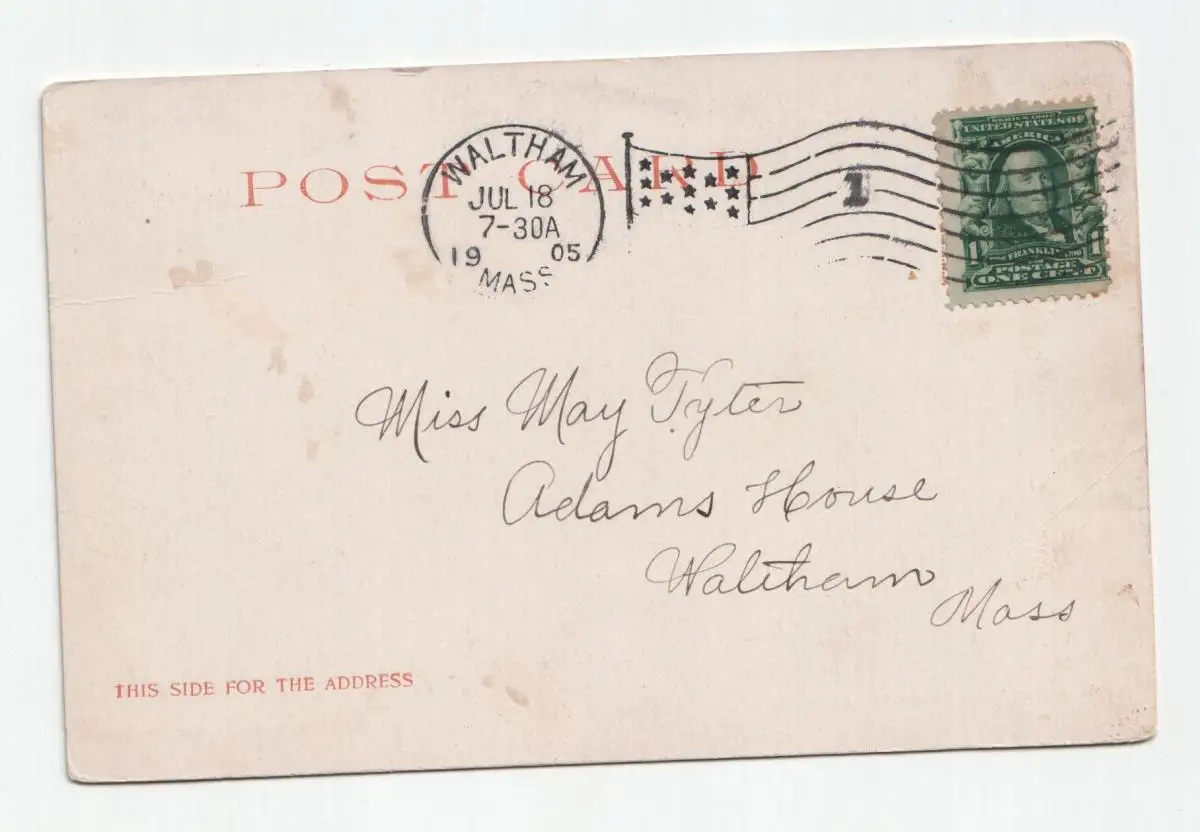 POST CARD
WALTHAM
JUL 18
7-30A
19 05
MASS
1
SERIES 1902
UNITED STATES OF
AMERICA
1 1
FRANKLIN 1790
POSTAGE
ONE CENT
Miss May Tyter
Adams House
Waltham
Mass
THIS SIDE FOR THE ADDRESS